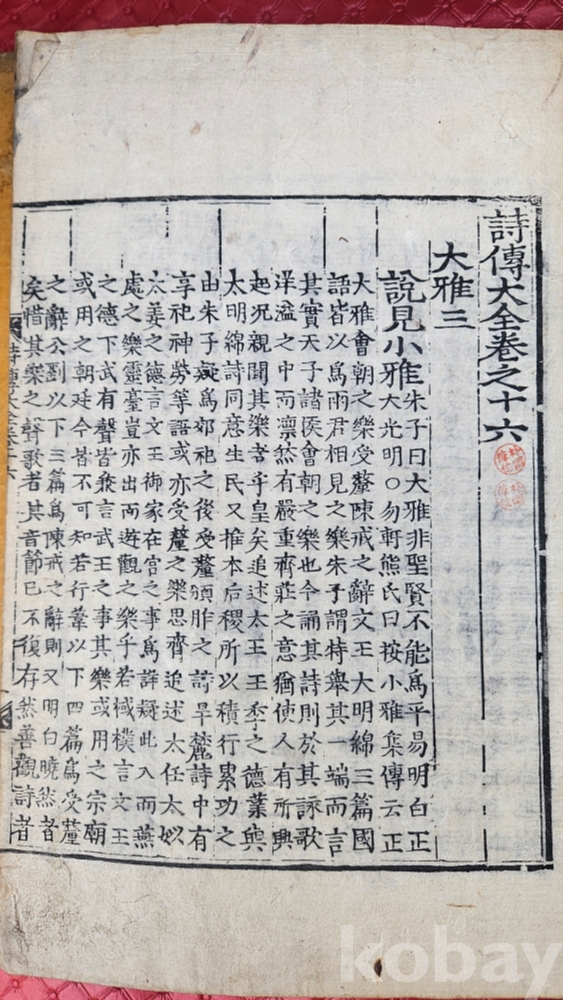 詩傳大全卷之十六
大雅三
說見小雅
朱子曰大雅非聖賢不能爲平易明白正
大光明○勿軒熊氏曰按小雅集傳云正
大雅會朝之樂受釐陳戒之辭文王大明綿三篇國
語皆以爲兩君相見之樂朱子謂特舉其一端而言
其實天子諸侯會朝之樂也今誦其詩則於其詠歌
洋溢之中而凛然有嚴重齊莊之意猶使人有所興
起况親聞其樂者乎皇矣追述太王王季之德業與
太明綿詩同意生民又推本后稷所以積行累功之
由朱子疑爲郊祀之後受釐頒胙之詩旱麓詩中有
享祀神勞等語或亦受釐之樂思齊追述太任太姒
太姜之德言文王御家在宫之事爲詳疑此入而燕
處之樂靈臺豈亦出而遊觀之樂乎若棫樸言文王
之德下武有聲皆兼言武王之事其樂或用之宗廟
或用之朝廷今皆不可知若行葦以下四篇爲受釐
之辭公劉以下三篇爲陳戒之辭則又明白曉然者
矣惜其樂之聲歌者其音節已不復存然善觀詩者
kobay